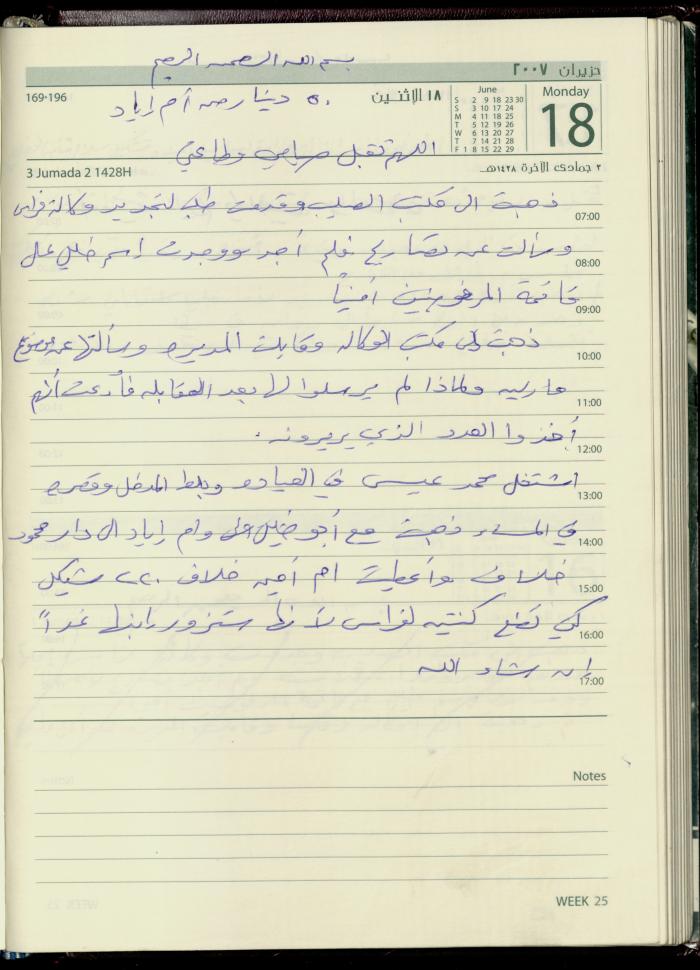 بسم الله الرحمن الرحيم
حزيران ٢٠٠٧
169-196
٥٠ دينار من أم إياد
١٨ الإثنين
June
S 2 9 16 23 30
S 3 10 17 24
M 4 11 18 25
T 5 12 19 26
W 6 13 20 27
T 7 14 21 28
F 1 8 15 22 29
Monday
18
اللهم تقبل صيامي وطاعتي
3 Jumada 2 1428H
٢ جمادى الآخرة ١٤٢٨هـ
ذهبت الى مكتب الصليب وقدمت طلب لتجديد وكالة فراس
07:00
وسألت عن تصاريح فلم أجد ووجدت اسم خليل على
08:00
قائمة المرفوضين أمنياً
09:00
ذهبت إلى مكتب الوكالة وقابلت المديرة وسألتها عن موضوع
10:00
ولماذا لم يرسلوا لها بعد المقابلة فأدعت أنهم
11:00
أخذوا العدد الذي يريدونه .
12:00
اشتغل محمد عيسى في العيادة وبلط المدخل وقصره
13:00
في المساء ذهبت مع أبو خليل وام إياد الى دار محمود
14:00
خلاف وأعطيت ام أمين خلاف ٢٢٠ شيكل
15:00
كي تضع كنتينه لفراس لأنها ستزور ابنها غداً
16:00
إن شاء الله
17:00
Notes
WEEK 25